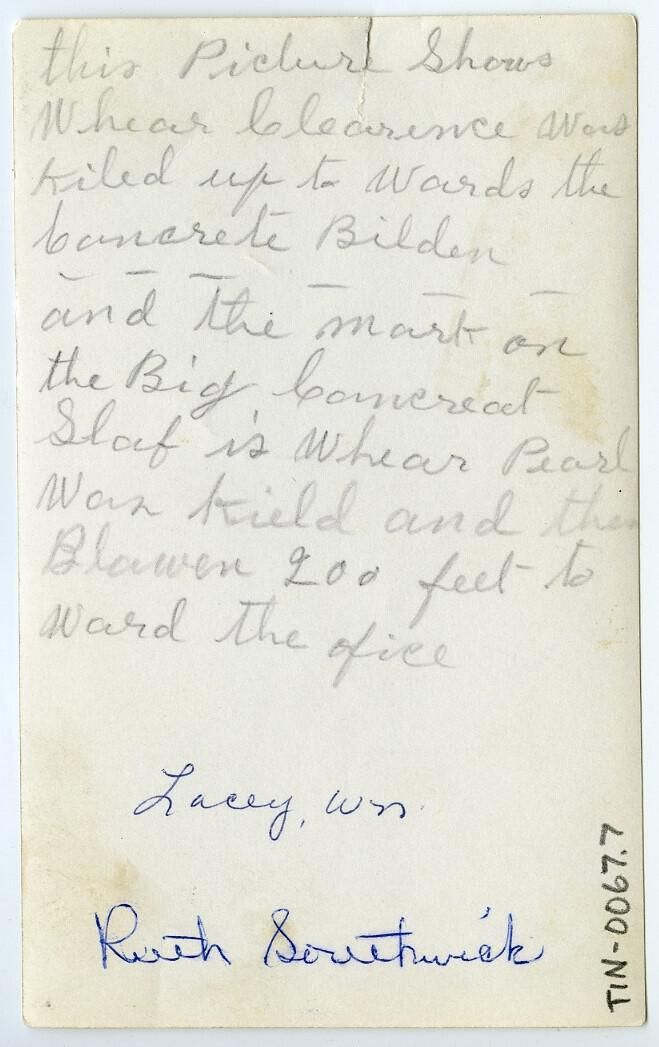 this Picture Shows
Whear Clearence Was
kiled up to Wards the
Concrete Bilden
and the mark on
the Big Concreat
Slaf is Whear Pearl
Was kield and then
Blawen 200 feet to
Ward the ofice
Lacey, Wn.
Ruth Southwick
TIN-0067.7